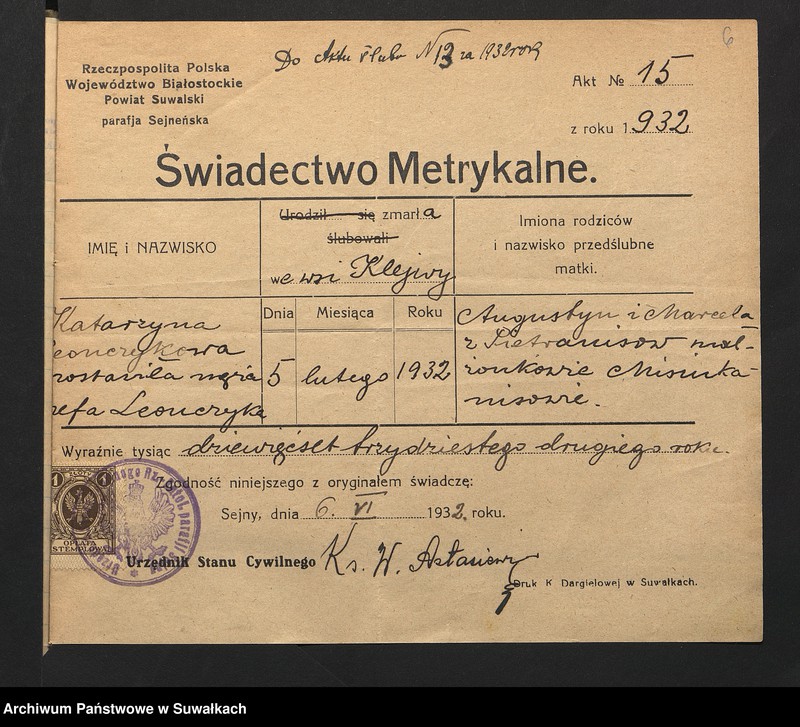 6
Do Aktu ślubu N 13 za 1932 rok
Rzeczpospolita Polska
Województwo Białostockie
Powiat Suwalski
parafja Sejneńska
Akt № 15
z roku 1932
Świadectwo Metrykalne.
IMIĘ i NAZWISKO
Urodził się zmarła
ślubowali
we wsi Klejwy
Imiona rodziców
i nazwisko przedślubne
matki.
Dnia
Miesiąca
Roku
Katarzyna
eonczykowa
ozostawiła męża
zefa Leonczyka
5
lutego
1932
Augustyn i Marcela
z Pietranisow mał-
żonkowie Misiuka-
nisowie.
Wyraźnie tysiąc dziewięćset trzydziestego drugiego roku.
Zgodność niniejszego z oryginałem świadczę:
Sejny, dnia 6. VI 1932. roku.
Urzędnik Stanu Cywilnego Ks. W.
Druk K Dargielowej w Suwałkach.
1 ZŁOTY 1
OPŁATA
STEMPLOWA
Archiwum Państwowe w Suwałkach